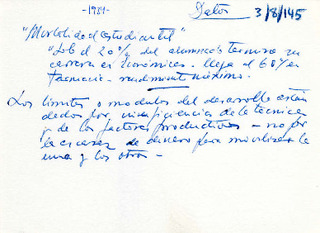 -1981-
Datos 3/8/145
"Mortalidad estudiantil"
"Sólo el 20% del alumnado termina su
carrera en Económicas. llega al 60% en
Farmacia - rendimiento máximo.
Los límites o módulos del desarrollo están
dados por insuficiencias de la técnica
y de los factores productivos - no por
la escasez de dinero para movilizar la
una y los otros -